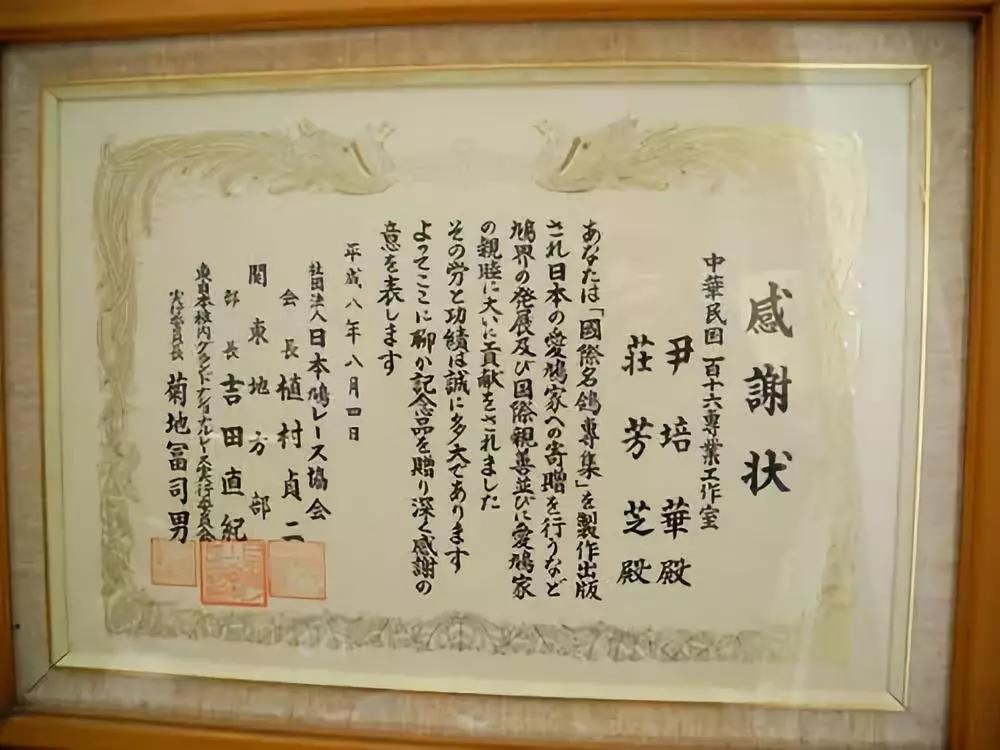 感謝状
中華民国 百十六専業工作室
尹培華殿
荘芳芝殿
あなたは「國際名鴿専集」を製作出版
され日本の愛鳩家への寄贈を行うなど
鳩界の発展及び国際親善並びに愛鳩家
の親睦に大いに貢献をされました
その労と功績は誠に多大であります
よってここに聊か記念品を贈り深く感謝の
意を表します
平成八年八月四日
社団法人 日本鳩レース協会
会長 植村貞二
関東地方部
部長 吉田直紀
東日本稚内グランドナショナルレース実行委員会
実行委員長 菊地冨司男